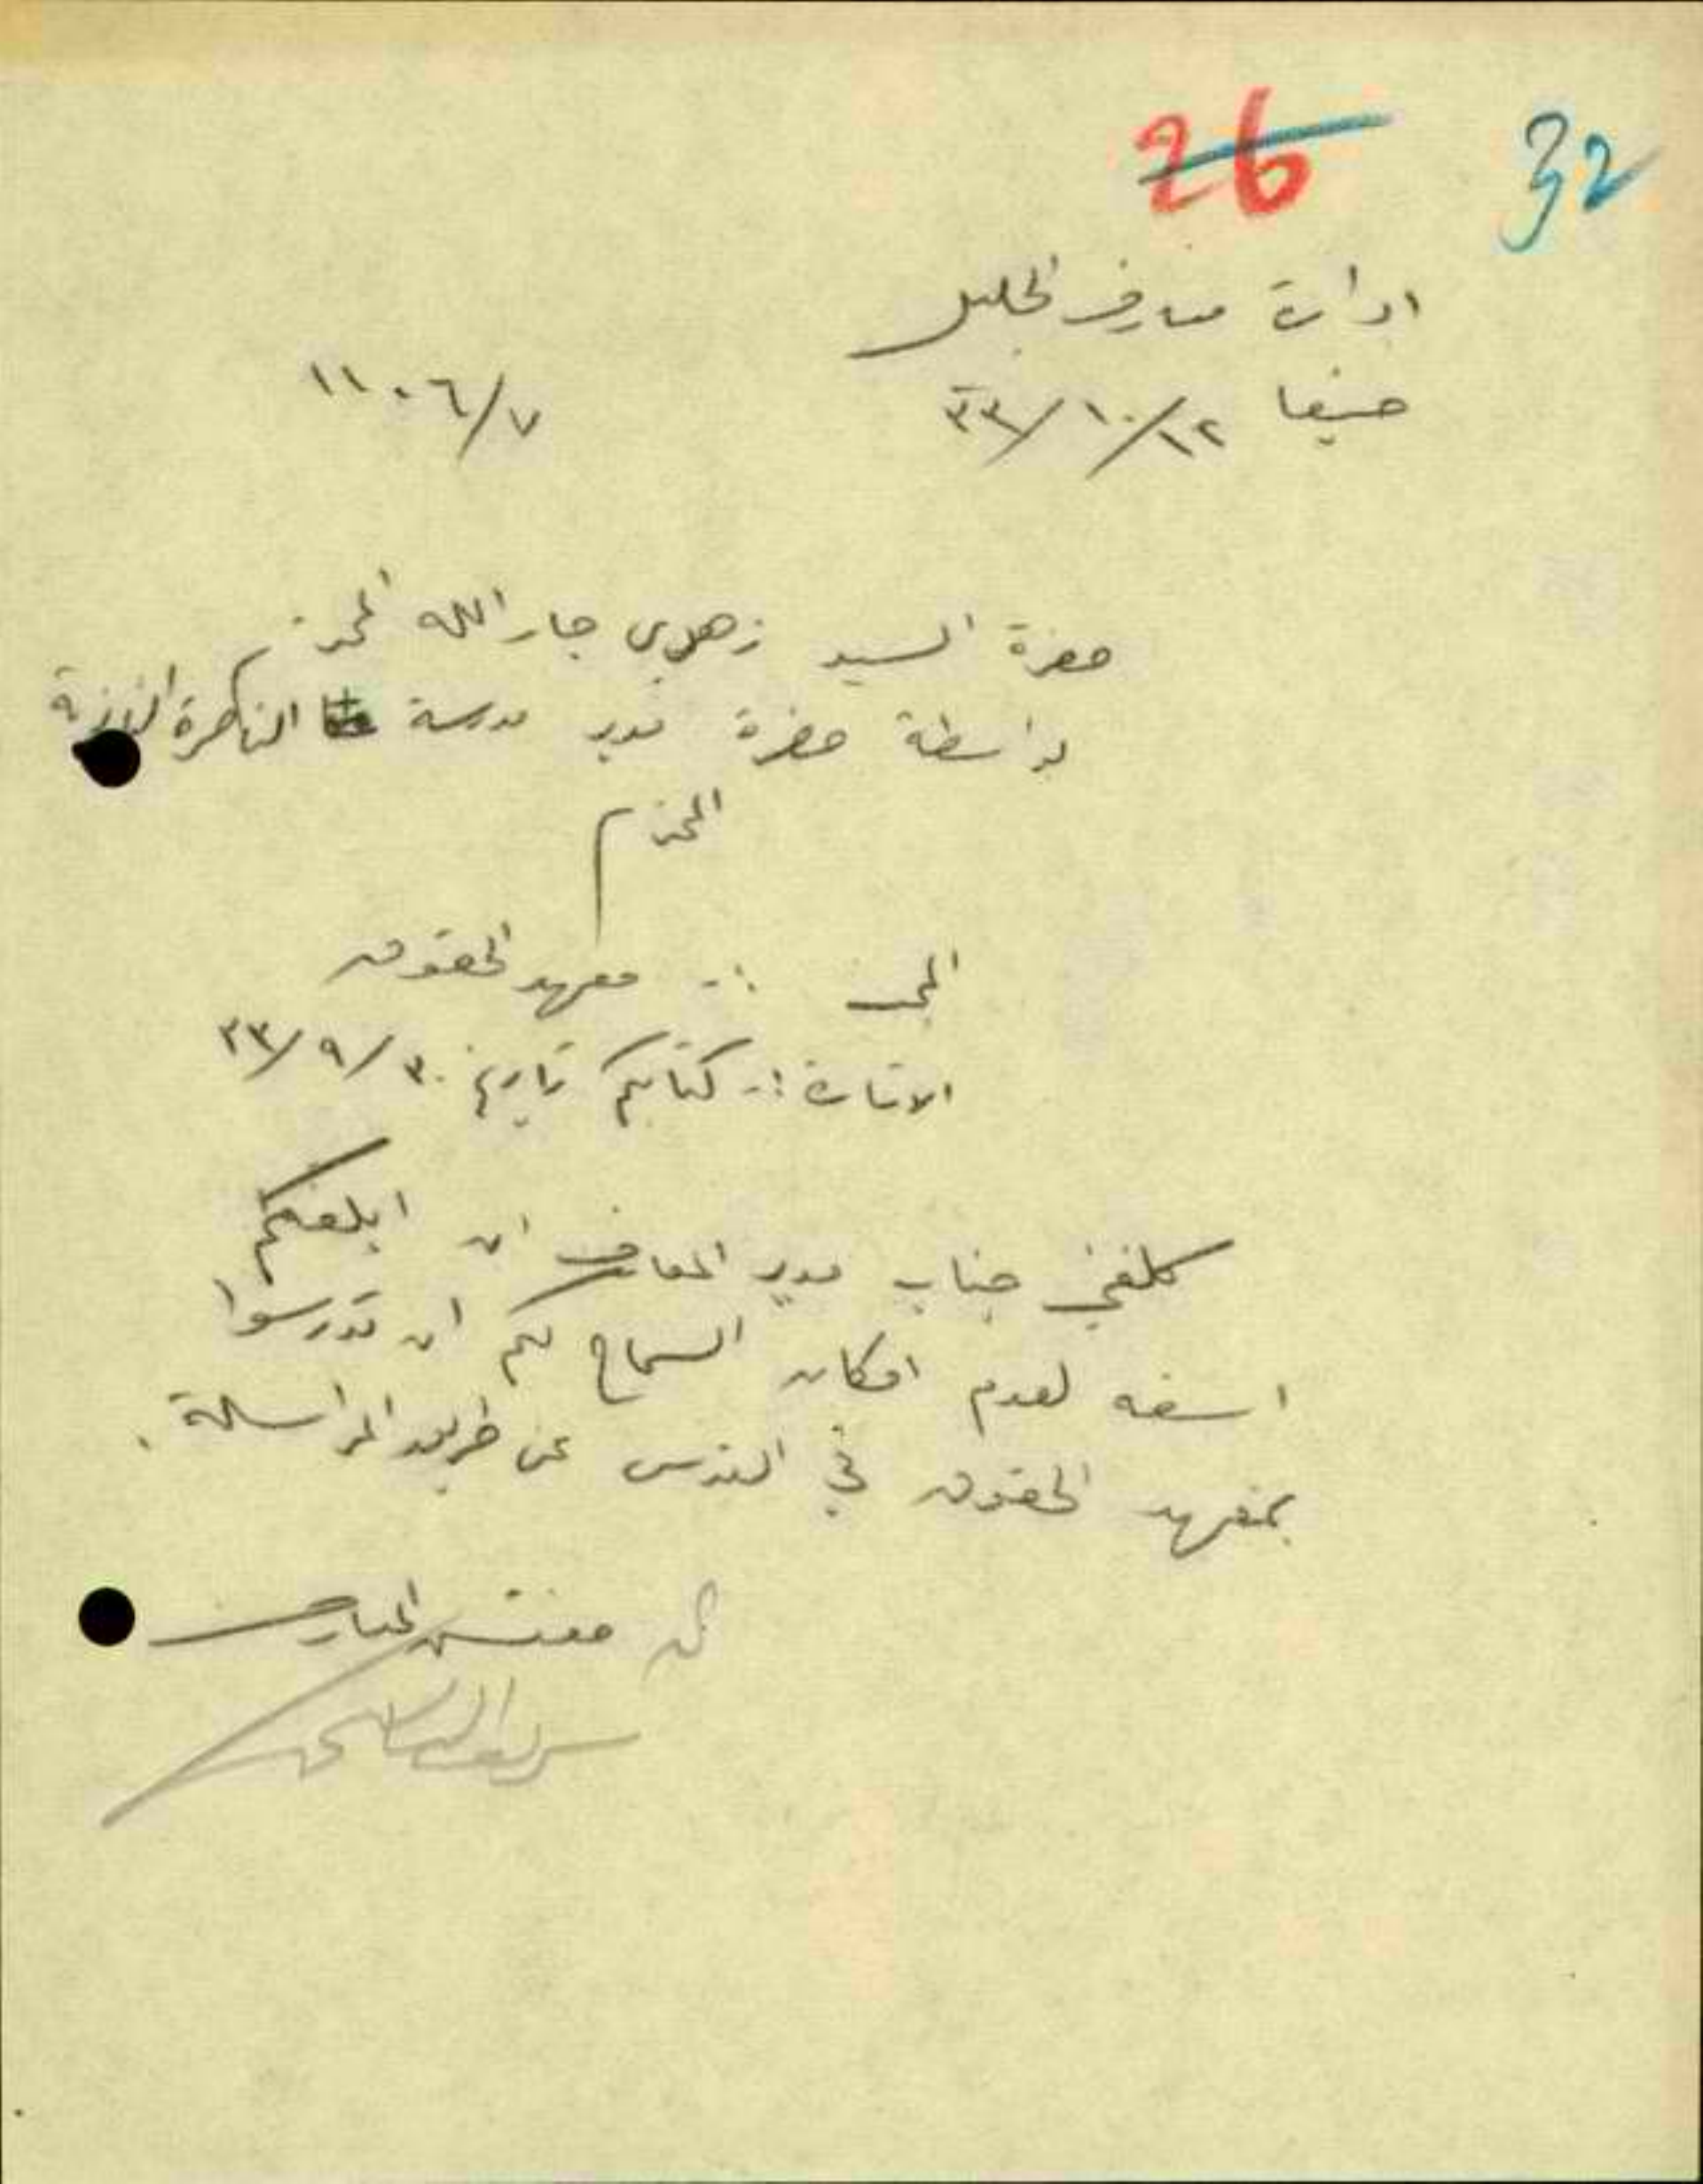 26 32
ادارة معارف الجليل
حيفا ١٢/١٠/٣٣
١١٠٦/٧
حضرة السيد زهدي جار الله المحترم
بواسطة حضرة مدير مدرسة الناصرة الثانوية
المحترم
المبحث :- معهد الحقوق
الاشارة :- كتابكم تاريخ ٣٠/٩/٣٣
كلفني جناب مدير المعارف ان ابلغكم
اسفه لعدم امكان السماح لكم ان تدرسوا
بمعهد الحقوق في القدس عن طريق المراسلة .
مفتش المعارف